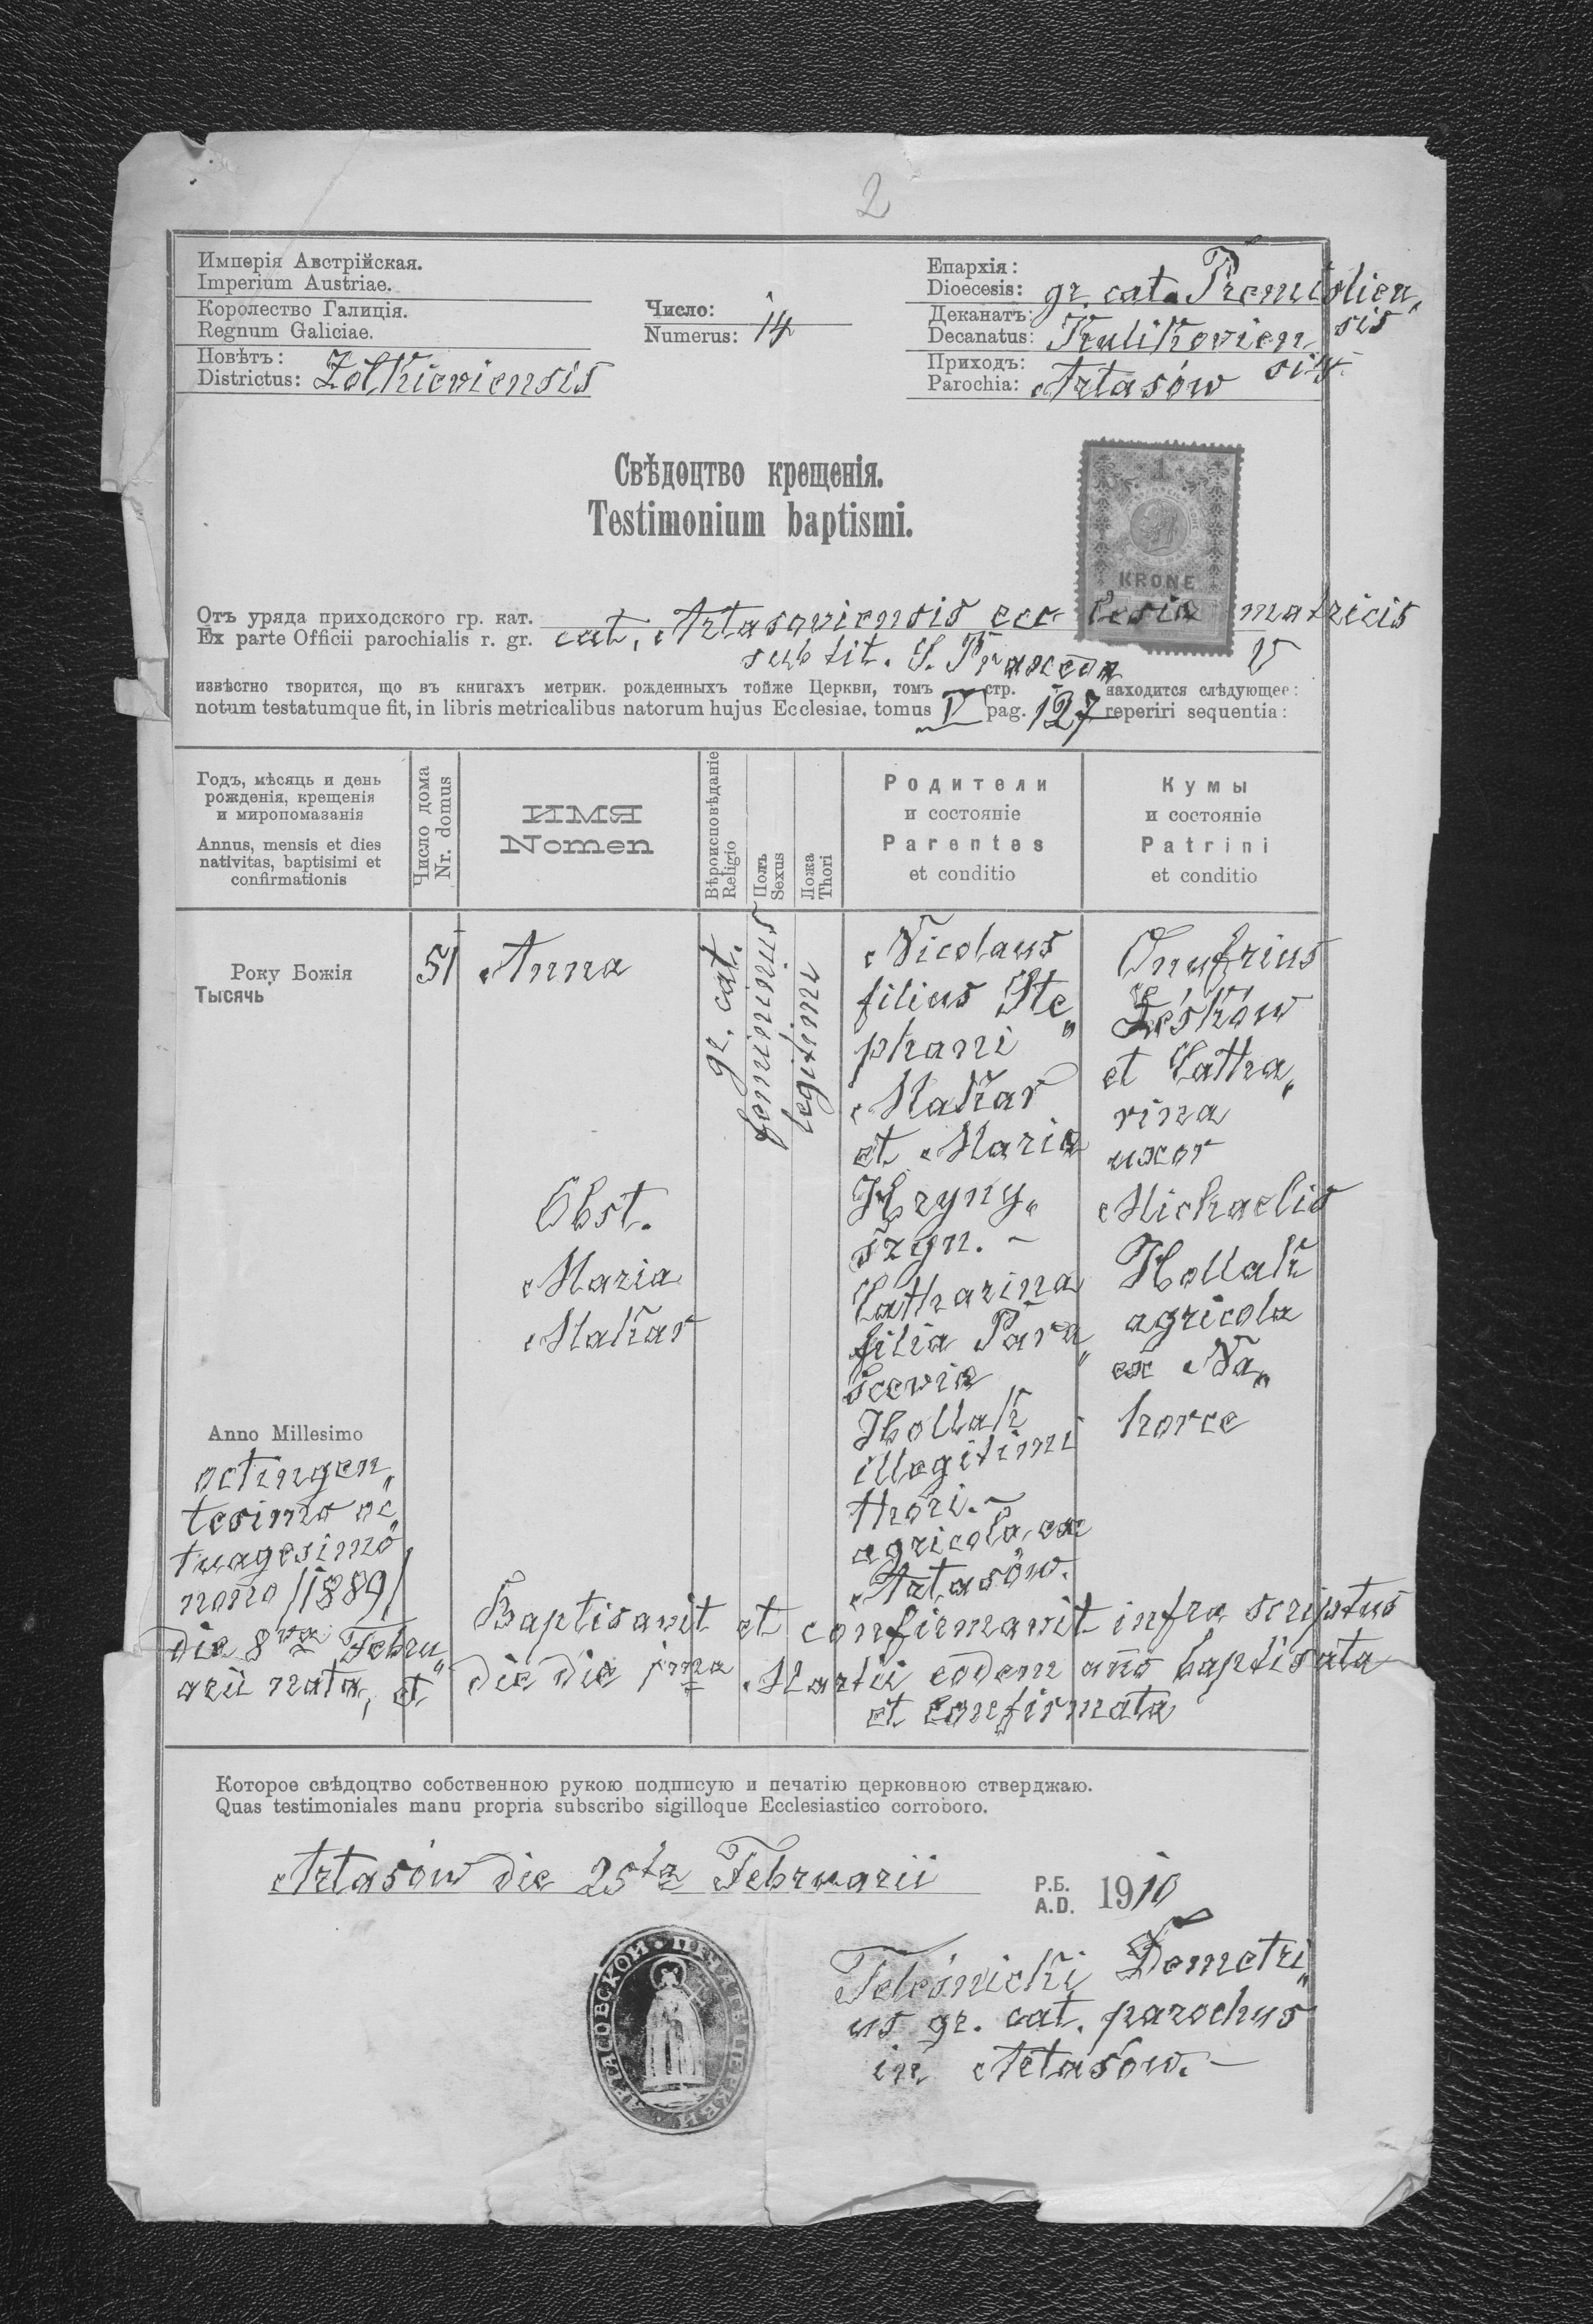 2
Имперія Австрійская.
Imperium Austriae.
Королество Галиція.
Regnum Galiciae.
Повѣтъ:
Districtus: Żółkieviensis
Число:
Numerus: 14
Епархія:
Dioecesis: gr. cat. Premislien„
sis
Деканатъ:
Decanatus: Kulikovien
sis
Приходъ:
Parochia: Artasów
Свѣдоцтво крещенія.
Testimonium baptismi.
1
KRONE
Отъ уряда приходского гр. кат.
Ex parte Officii parochialis r. gr. cat. Artasoviensis ecclesia matricis
sub tit. S.
извѣстно творится, що въ книгахъ метрик. рожденныхъ тойже Церкви, томъ стр. находится слѣдующее:
notum testatumque fit, in libris metricalibus natorum hujus Ecclesiae, tomus V pag. 127 reperiri sequentia:
Годъ, мѣсяць и день
рожденія, крещенія
и миропомазанія
Annus, mensis et dies
nativitas, baptisimi et
confirmationis
Число дома
Nr. domus
ИМЯ
Nomen
Вѣроисповѣданіе
Religio
Полъ
Sexus
Ложа
Thori
Родители
и состояніе
Parentes
et conditio
Кумы
и состояніе
Patrini
et conditio
Року Божія
Тысячь
51
Anna
gr. cat.
femininus
legitimi
Nicolaus
filius Ste„
phani
Makar
et Maria
Hryny„
szyn. –
Catharina
filia Para„
scevia
Hollak
illegitimi
thori. –
agricola ex
Artasów.
Onufrius
Leśków
et Catha„
rina
uxor
Michaelis
Hollak
agricola
ex Na„
horce
Obst.
Maria
Makar
Anno Millesimo
octingen„
tesimo oc„
tuagesimo
nono /1889/
die 8va Febru„
arii nata, et
Baptisavit et confirmavit infra scriptus
die die 1ma Martii eodem ano baptisata
et confirmata
Которое свѣдоцтво собственною рукою подписую и печатію церковною стверджаю.
Quas testimoniales manu propria subscribo sigilloque Ecclesiastico corroboro.
Artasów die 25ta Februarii
Р.Б.
A.D. 1910
Teleśnicki Demetri„
us gr. cat. parochus
in Artasów. –
ПЕЧАТЬ ЦЕРКВИ АРТАСОВСКОИ